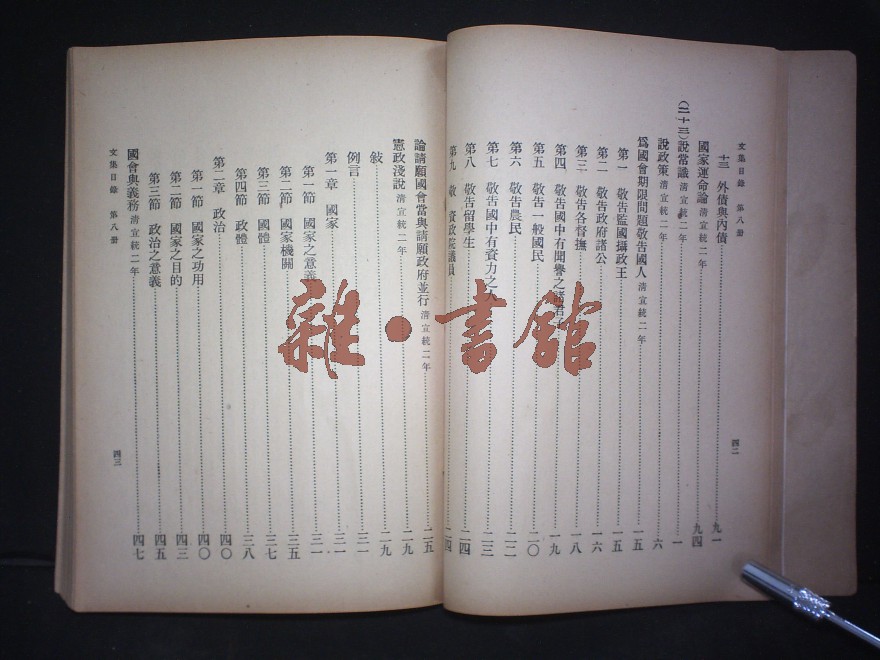 文集目錄　第八册
四二
十三　外債與內債……九一
國家運命論 清宣統二年……九四
(二十三)說常識 清宣統二年……一
說政策 清宣統二年……六
爲國會期限問題敬告國人 清宣統二年……一五
第一　敬告監國攝政王……一五
第二　敬告政府諸公……一六
第三　敬告各督撫……一八
第四　敬告國中有聞譽之諸君子……一九
第五　敬告一般國民……二〇
第六　敬告農民……二二
第七　敬告國中有資力之人……二三
第八　敬告留學生……二四
第九　敬　資政院議員……二四
論請願國會當與請願政府並行 清宣統二年……二五
憲政淺說 清宣統二年……二九
敍……二九
例言……三一
第一章　國家……三一
第一節　國家之意義……三一
第二節　國家機關……三五
第三節　國體……三七
第四節　政體……三八
第二章　政治……四〇
第一節　國家之功用……四〇
第二節　國家之目的……四三
第三節　政治之意義……四五
國會與義務 清宣統二年……四七
文集目錄　第八册
四三
雜·書館